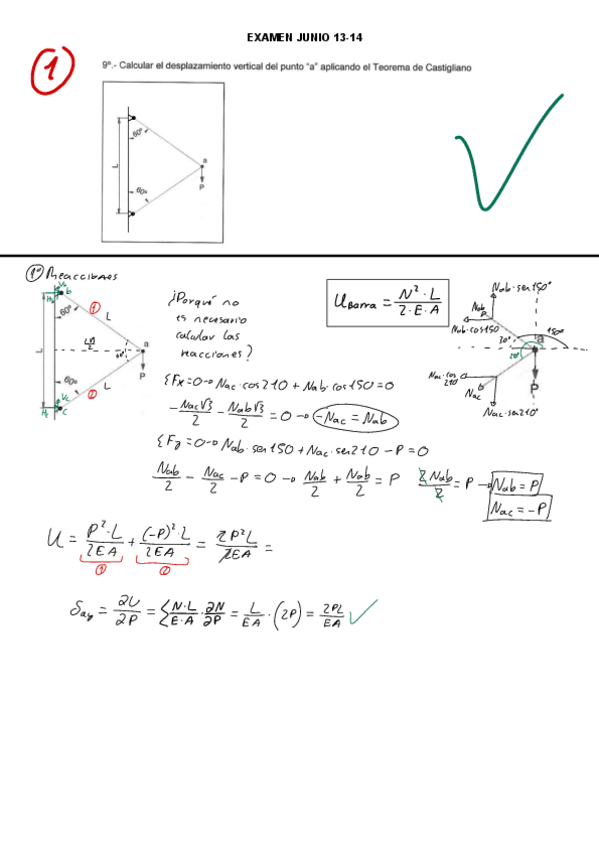 EXAMEN JUNIO 13-14
1
9º.- Calcular el desplazamiento vertical del punto "a" aplicando el Teorema de Castigliano
60º
L
a
P
60º
1º Reacciones
¿Porqué no
es necesario
calcular las
reacciones?
U Barra = N²·L / 2·E·A
b
60º
1
L
L
a
60º
P
60º
L
2
c
Nab·sen150º
Nab
Nab·cos150
30º
150º
a
P
Nac·cos 210
Nac
Nac·sen210º
ΣFx=0→ Nac·cos210 + Nab·cos150=0
-Nac√3/2 - Nab√3/2 = 0 → -Nac = Nab
ΣFy=0→ Nab·sen150+Nac·sen210-P=0
Nab/2 - Nac/2 - P = 0 → Nab/2 + Nab/2 = P 2Nab/2 = P → Nab = P
Nac = -P
U = P²·L/2EA + (-P)²·L/2EA = 2P²L/2EA =
1 2
δay = ∂U/∂P = Σ N·L/E·A · ∂N/∂P = L/EA · (2P) = 2PL/EA